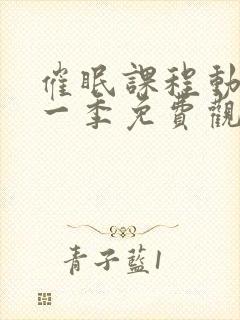 催眠課程動
一季免費觀
青子藍1